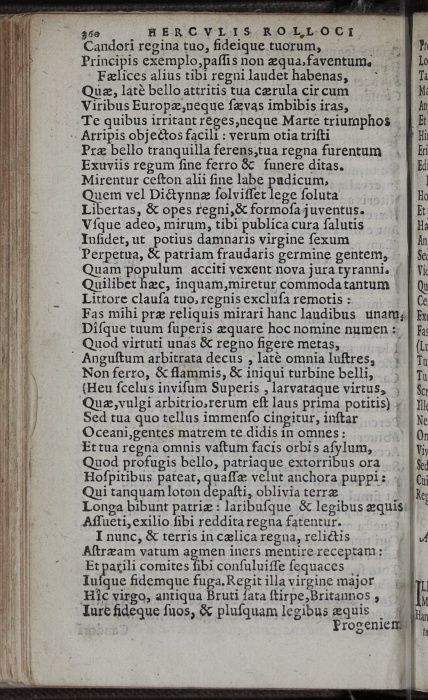 360 HERCVLIS ROLLOCI
Candori regina tuo, fideique tuorum,
Principis exemplo, paſſis non æqua, faventum.
Fælices alius tibi regni laudet habenas,
Quæ, latè bello attritis tua cærula circum
Viribus Europæ, neque ſævas imbibis iras,
Te quibus irritant reges, neque Marte triumphos
Arripis objectos facili : verum otia triſti
Præ bello tranquilla ferens, tua regna furentum
Exuviis regum ſine ferro & funere ditas.
Mirentur ceſton alii ſine labe pudicum,
Quem vel Dictynnæ ſolviſſet lege ſoluta
Libertas, & opes regni, & formoſa juventus.
Vſque adeo, mirum, tibi publica cura ſalutis
Inſidet, ut potius damnaris virgine ſexum
Perpetua, & patriam fraudaris germine gentem,
Quam populum acciti vexent nova jura tyranni.
Quilibet hæc, inquam, miretur commoda tantum
Littore clauſa tuo, regnis excluſa remotis :
Fas mihi præ reliquis mirari hanc laudibus unam,
Dîſque tuum ſuperis æquare hoc nomine numen :
Quod virtuti unas & regno figere metas,
Anguſtum arbitrata decus , latè omnia luſtres,
Non ferro, & flammis, & iniqui turbine belli,
(Heu ſcelus inviſum Superis , larvataque virtus,
Quæ, vulgi arbitrio, rerum eſt laus prima potitis)
Sed tua quo tellus immenſo cingitur, inſtar
Oceani, gentes matrem te didis in omnes :
Et tua regna omnis vaſtum facis orbis aſylum,
Quod profugis bello, patriaque extorribus ora
Hoſpitibus pateat, quaſſæ velut anchora puppi :
Qui tanquam loton depaſti, oblivia terræ
Longa bibunt patriæ : laribuſque & legibus æquis
Aſſueti, exilio ſibi reddita regna fatentur.
I nunc, & terris in cælica regna, relictis
Aſtræam vatum agmen iners mentire receptam :
Et parili comites ſibi conſuluiſſe ſequaces
Iuſque fidemque fuga. Regit illa virgine major
Hîc virgo, antiqua Bruti ſata ſtirpe, Britannos ,
Iure fideque ſuos, & pluſquam legibus æquis
Progeniem